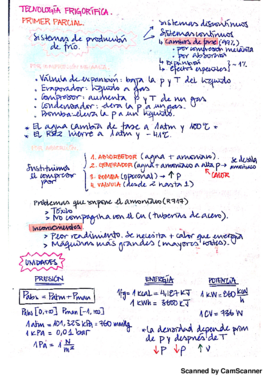 TECNOLOGÍA FRIGORÍFICA.
PRIMER PARCIAL.
Sistemas de producción de frío.
Sistemas discontinuos
Sistemas continuos
↳ Cambios de fase (99%)
• por compresión mecánica
• por absorción
↳ expansión
↳ efectos especiales
} ~ 1%
• Válvula de expansión: baja la p y T del líquido
• Evaporador: líquido a gas
• Compresor: aumenta p y T de un gas
• Condensador: lleva la p a un gas
• Bomba: eleva la p a un líquido.
* El agua cambia de fase a 1 atm y 100°C *
* El R717 hierve a 1 atm y
Sustituimos el compresor por:
1. ABSORBEDOR (agua + amoníaco).
2. GENERADOR (agua + amoníaco a alta p →
3. BOMBA (opcional) → ↑ p
4. VÁLVULA (desde 2 hasta 1)
CALOR
Problemas que rompe el amoníaco (R717)
↳ Tóxico
↳ No compagina con el Cu (tuberías de acero).
Inconvenientes:
↳ Peor rendimiento. Se necesita + calor que energía
↳ Máquinas más grandes (mayores
UNIDADES
PRESIÓN
Pabs = Patm - Pman
Pabs [0, +∞] Pman [-1, ∞]
1 atm = 101,325 KPa = 760 mmHg
1 KPa = 0,01 bar
1 Pa = 1 N/m²
ENERGÍA
1 KCAL = 4,187 KJ
1 KWh = 3600 KJ
POTENCIA
1 KW = 860 Kcal/h
1 CV = 736 W
* la densidad depende primero de p y después de T
↓ P ↑ P ↓ v
Scanned by CamScanner